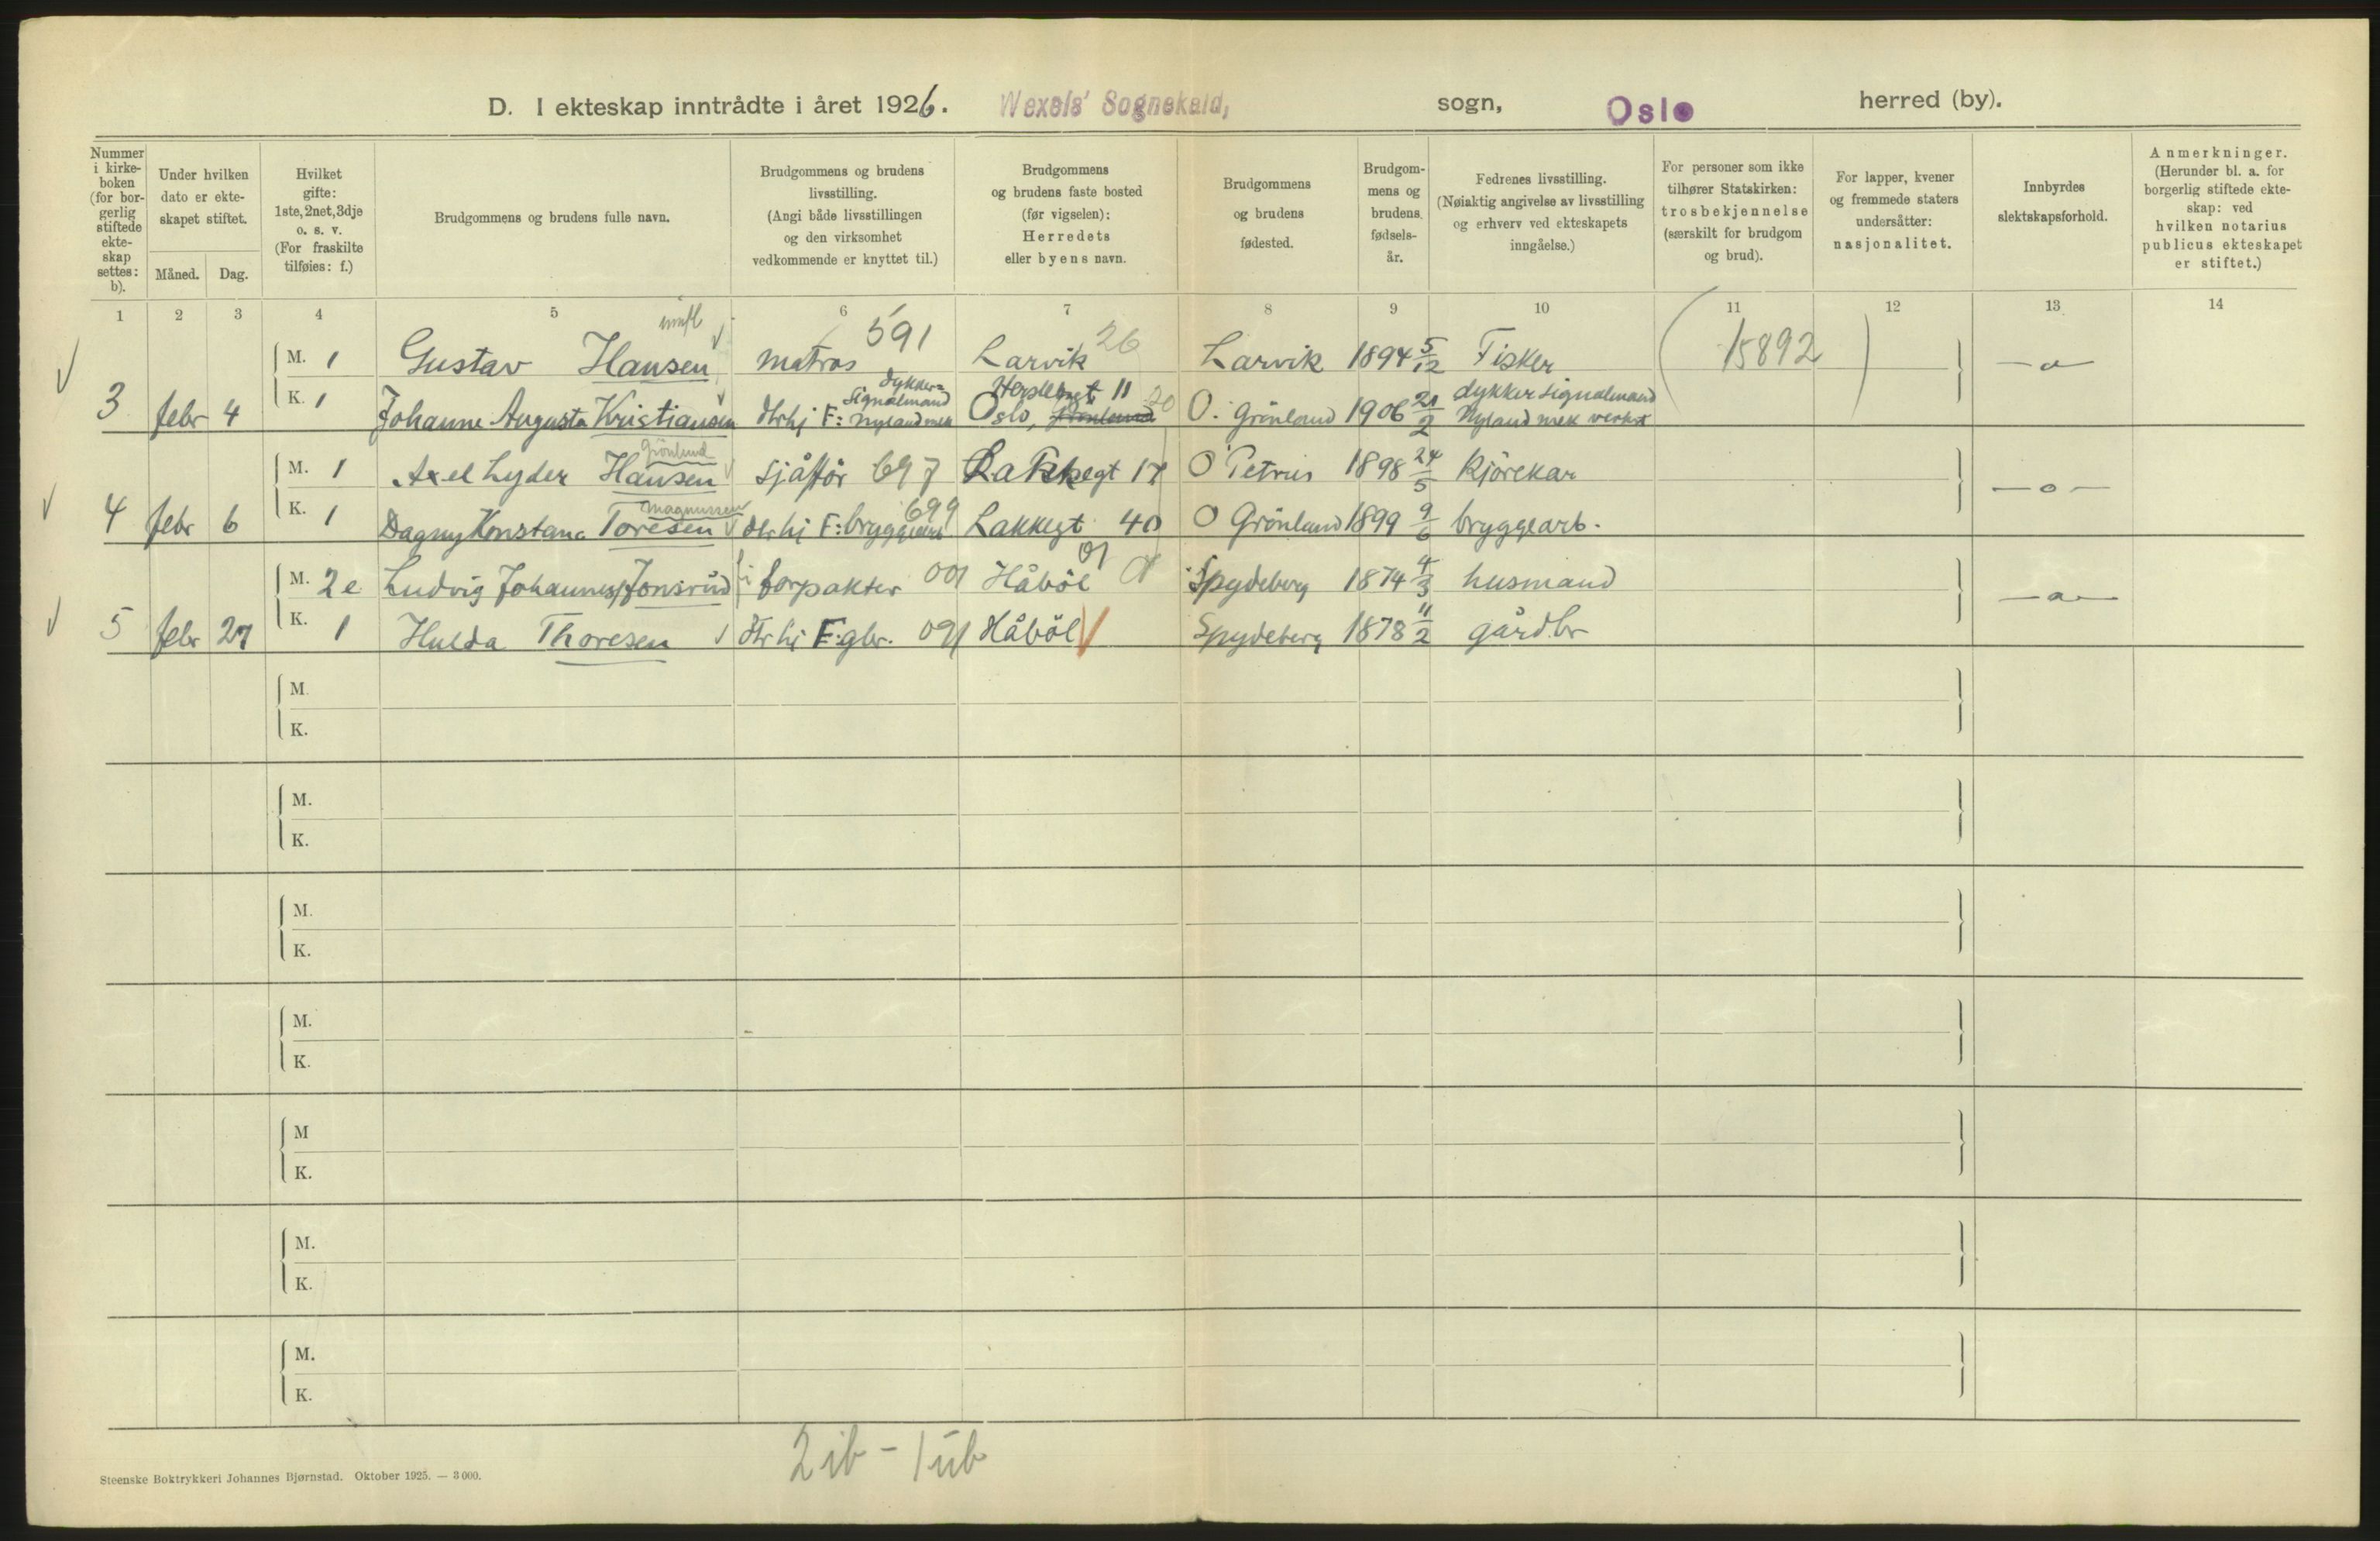 D. I ekteskap inntrådte i året 1926. Wexels' Sognekald, sogn, Oslo herred (by).
Nummer i kirke-boken (for bor-gerlig stiftede ekte-skap settes: b).
Under hvilken dato er ekte-skapet stiftet.
Måned. Dag.
Hvilket gifte: 1ste, 2net, 3dje o. s. v. (For fraskilte tilføies: f.)
Brudgommens og brudens fulle navn.
Brudgommens og brudens livsstilling. (Angi både livsstillingen og den virksomhet vedkommende er knyttet til.)
Brudgommens og brudens faste bosted (før vigselen): Herredets eller byens navn.
Brudgommens og brudens fødested.
Brudgom-mens og brudens fødsels-år.
Fedrenes livsstilling. (Nøiaktig angivelse av livsstilling og erhverv ved ekteskapets inngåelse.)
For personer som ikke tilhører Statskirken: trosbekjennelse (særskilt for brudgom og brud).
For lapper, kvener og fremmede staters undersåtter: nasjonalitet.
Innbyrdes slektskapsforhold.
Anmerkninger. (Herunder bl. a. for borgerlig stiftede ekte-skap: ved hvilken notarius publicus ekteskapet er stiftet.)
1 2 3 4 5 6 7 8 9 10 11 12 13 14
M. 1 Gustav Hansen matros 591 Larvik 26 Larvik 1894 5/12 Fisker (15892) — o —
dykker- signalmand Herslebgt 11 20 dykker signalmand
3 febr 4 K. 1 Johanne Augusta Kristiansen Hrhj F: Nyland mek Oslo, O. Grönland 1906 21/2 Nyland mek verkst
Grönlund
M. 1 Axel Lyder Hansen sjåffør 697 Lakkegt 17 O Petrus 1898 24/5 Kjörekar — o —
Magnussen 699
4 febr 6 K. 1 Dagny Konstanc Toresen Hrhj F: bryggearb Lakkegt 40 O Grönland 1899 9/6 bryggearb.
M. 2 e Ludvig Johannes Jonsrud forpakter 001 Håböl 01 Spydeberg 1874 4/3 husmand — o —
5 febr 27 K. 1 Hulda Thoresen Hrhj F: gbr. 091 Håböl Spydeberg 1878 11/2 gårdbr
M.
K.
M.
K.
M.
K.
M.
K.
M
K.
M.
K.
M.
K.
2 ib - 1 ub
Steenske Boktrykkeri Johannes Bjørnstad. Oktober 1925. — 3 000.